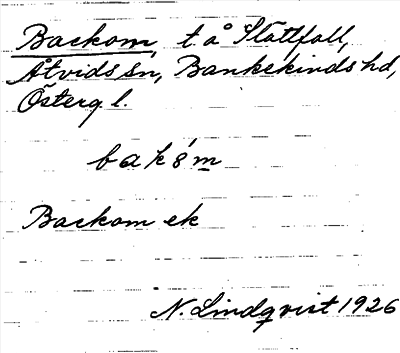 Backom, t. å Slättfall,
Åtvids sn, Bankekinds hd,
Österg l.
bak8´m
Backom ek
N. Lindqvist 1926